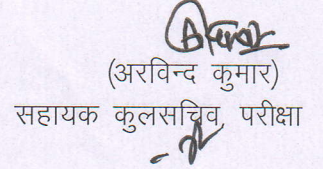 (अरविन्द कुमार)
सहायक कुलसचिव, परीक्षा